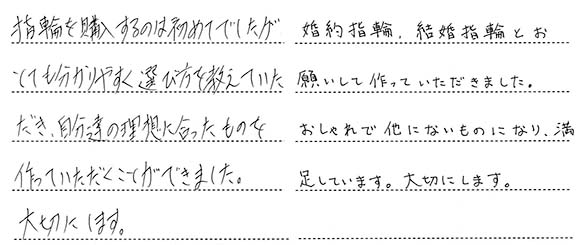 指輪を購入するのは初めてでしたが
とても分かりやすく選び方を教えていた
だき、自分達の理想に合ったものを
作っていただくことができました。
大切にします。
婚約指輪、結婚指輪とお
願いして作っていただきました。
おしゃれで他にないものになり、満
足しています。大切にします。